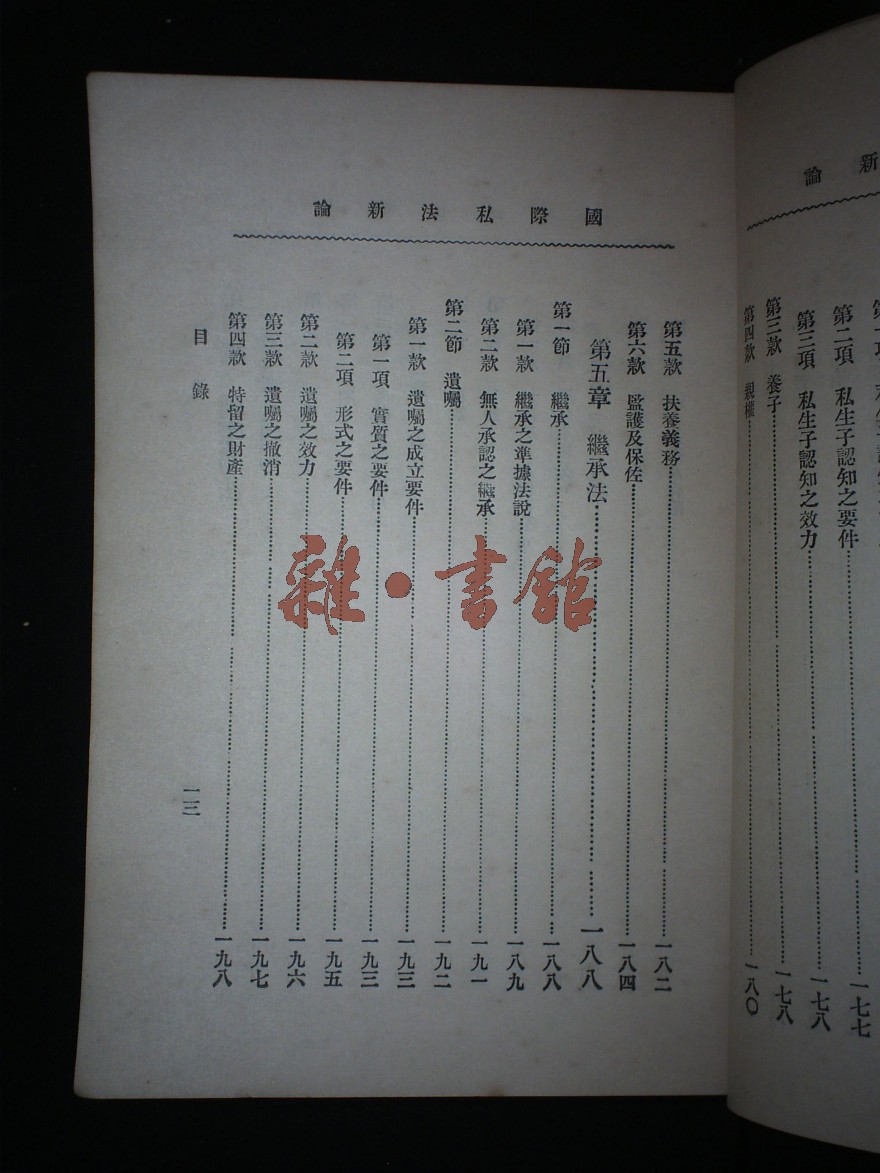 新論
第二項　私生子認知之要件……一七七
第三項　私生子認知之效力……一七八
第三款　養子……一七八
第四款　親權……一八〇
國際私法新論
第五款　扶養義務……一八二
第六款　監護及保佐……一八四
第五章　繼承法……一八八
第一節　繼承……一八八
第一款　繼承之準據法說……一八九
第二款　無人承認之繼承……一九一
第二節　遺囑……一九二
第一款　遺囑之成立要件……一九三
第一項　實質之要件……一九三
第二項　形式之要件……一九五
第二款　遺囑之效力……一九六
第三款　遺囑之撤消……一九七
第四款　特留之財產……一九八
目錄
一三
雜·書館